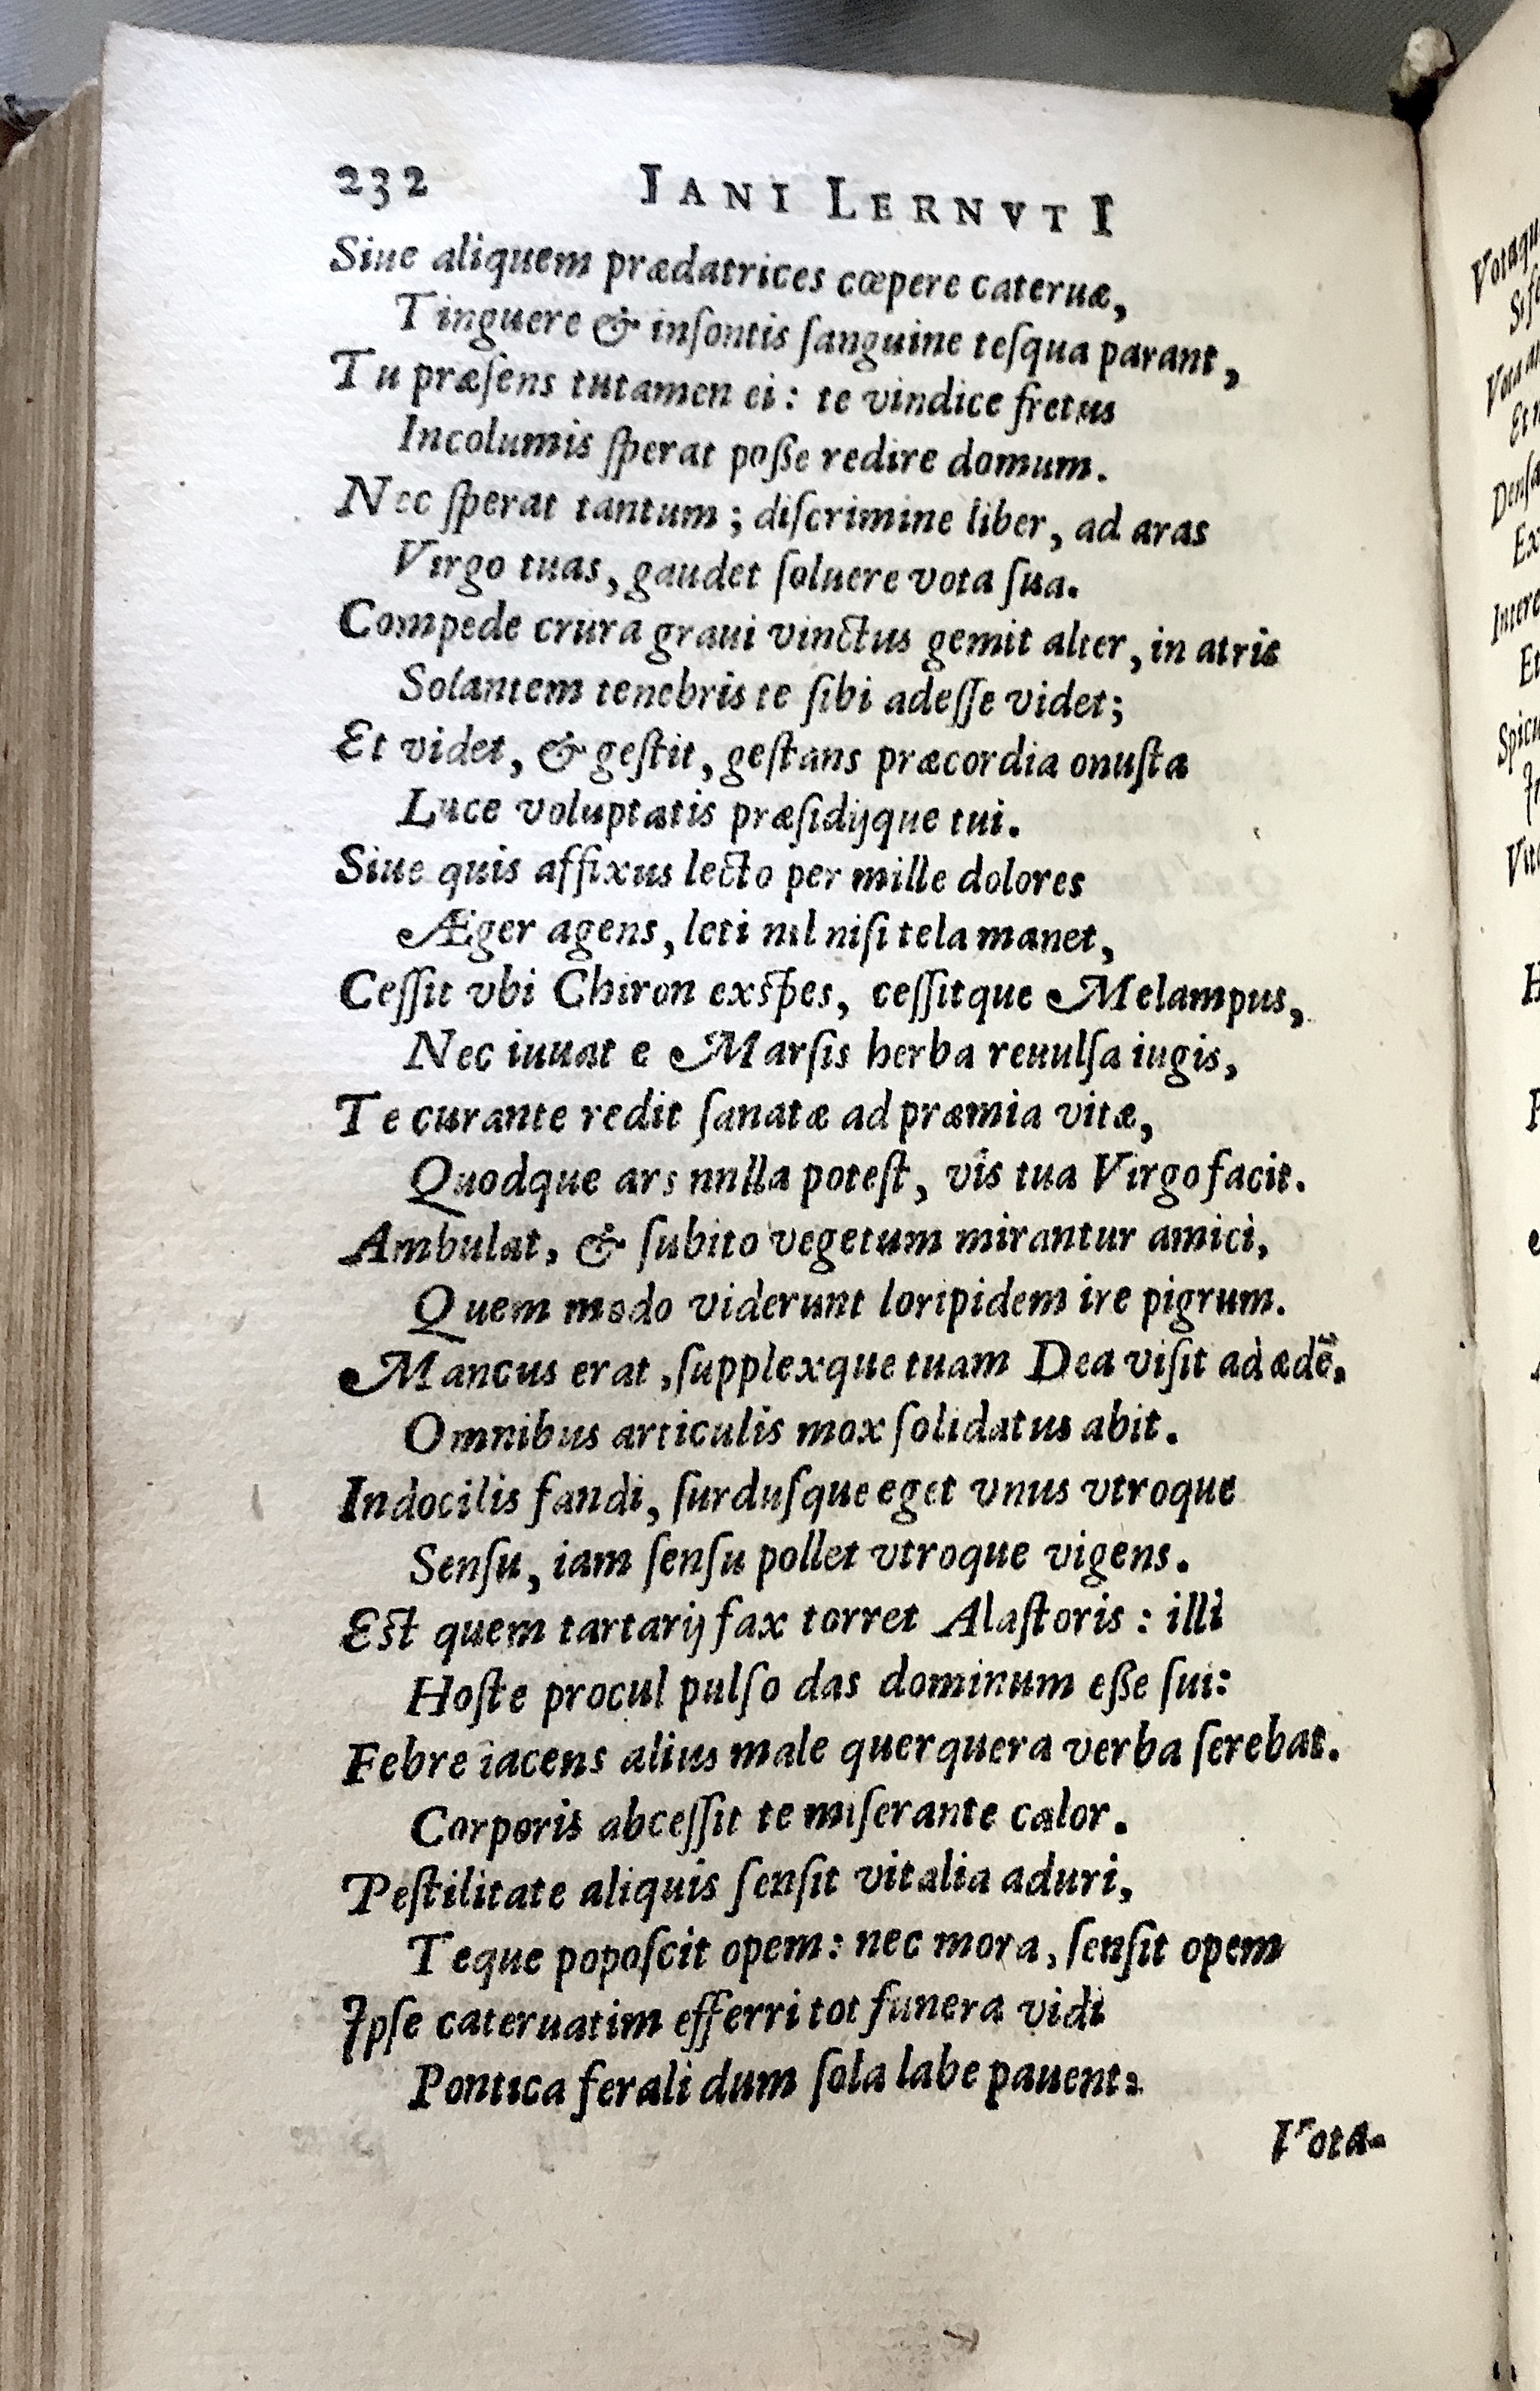 232 IANI LERNVTI
Siue aliquem prædatrices cœpere cateruæ,
Tinguere & inſontis ſanguine teſqua parant,
Tu præſens tutamen ei: te vindice fretus
Incolumis ſperat poße redire domum.
Nec ſperat tantum; diſcrimine liber, ad aras
Virgo tuas, gaudet ſoluere vota ſua.
Compede crura graui vinctus gemit alter, in atris
Solantem tenebris te ſibi adeſſe videt;
Et videt, & geſtit, geſtans præcordia onuſta
Luce voluptatis præſidijque tui.
Siue quis affixus lecto per mille dolores
Æger agens, leti nil niſi tela manet,
Ceſſit vbi Chiron exſpes, ceſſitque Melampus,
Nec iuuat e Marſis herba reuulſa iugis,
Te curante redit ſanatæ ad præmia vitæ,
Quodque ars nnlla poteſt, vis tua Virgo facit.
Ambulat, & ſubito vegetum mirantur amici,
Quem modo viderunt loripidem ire pigrum.
Mancus erat, ſupplexque tuam Dea viſit ad ædē.
Omnibus articulis mox ſolidatus abit.
Indocilis fandi, ſurduſque eget vnus vtroque
Senſu, iam ſenſu pollet vtroque vigens.
Eſt quem tartarij fax torret Alaſtoris: illi
Hoſte procul pulſo das dominum eße ſui:
Febre iacens alius male querquera verba ſerebat.
Corporis abceſſit te miſerante calor.
Peſtilitate aliquis ſenſit vitalia aduri,
Teque popoſcit opem: nec mora, ſenſit opem
Ipſe cateruatim efferri tot funera vidi
Pontica ferali dum ſola labe pauent:
Vota-
Vota
Et
Ex
Et
H